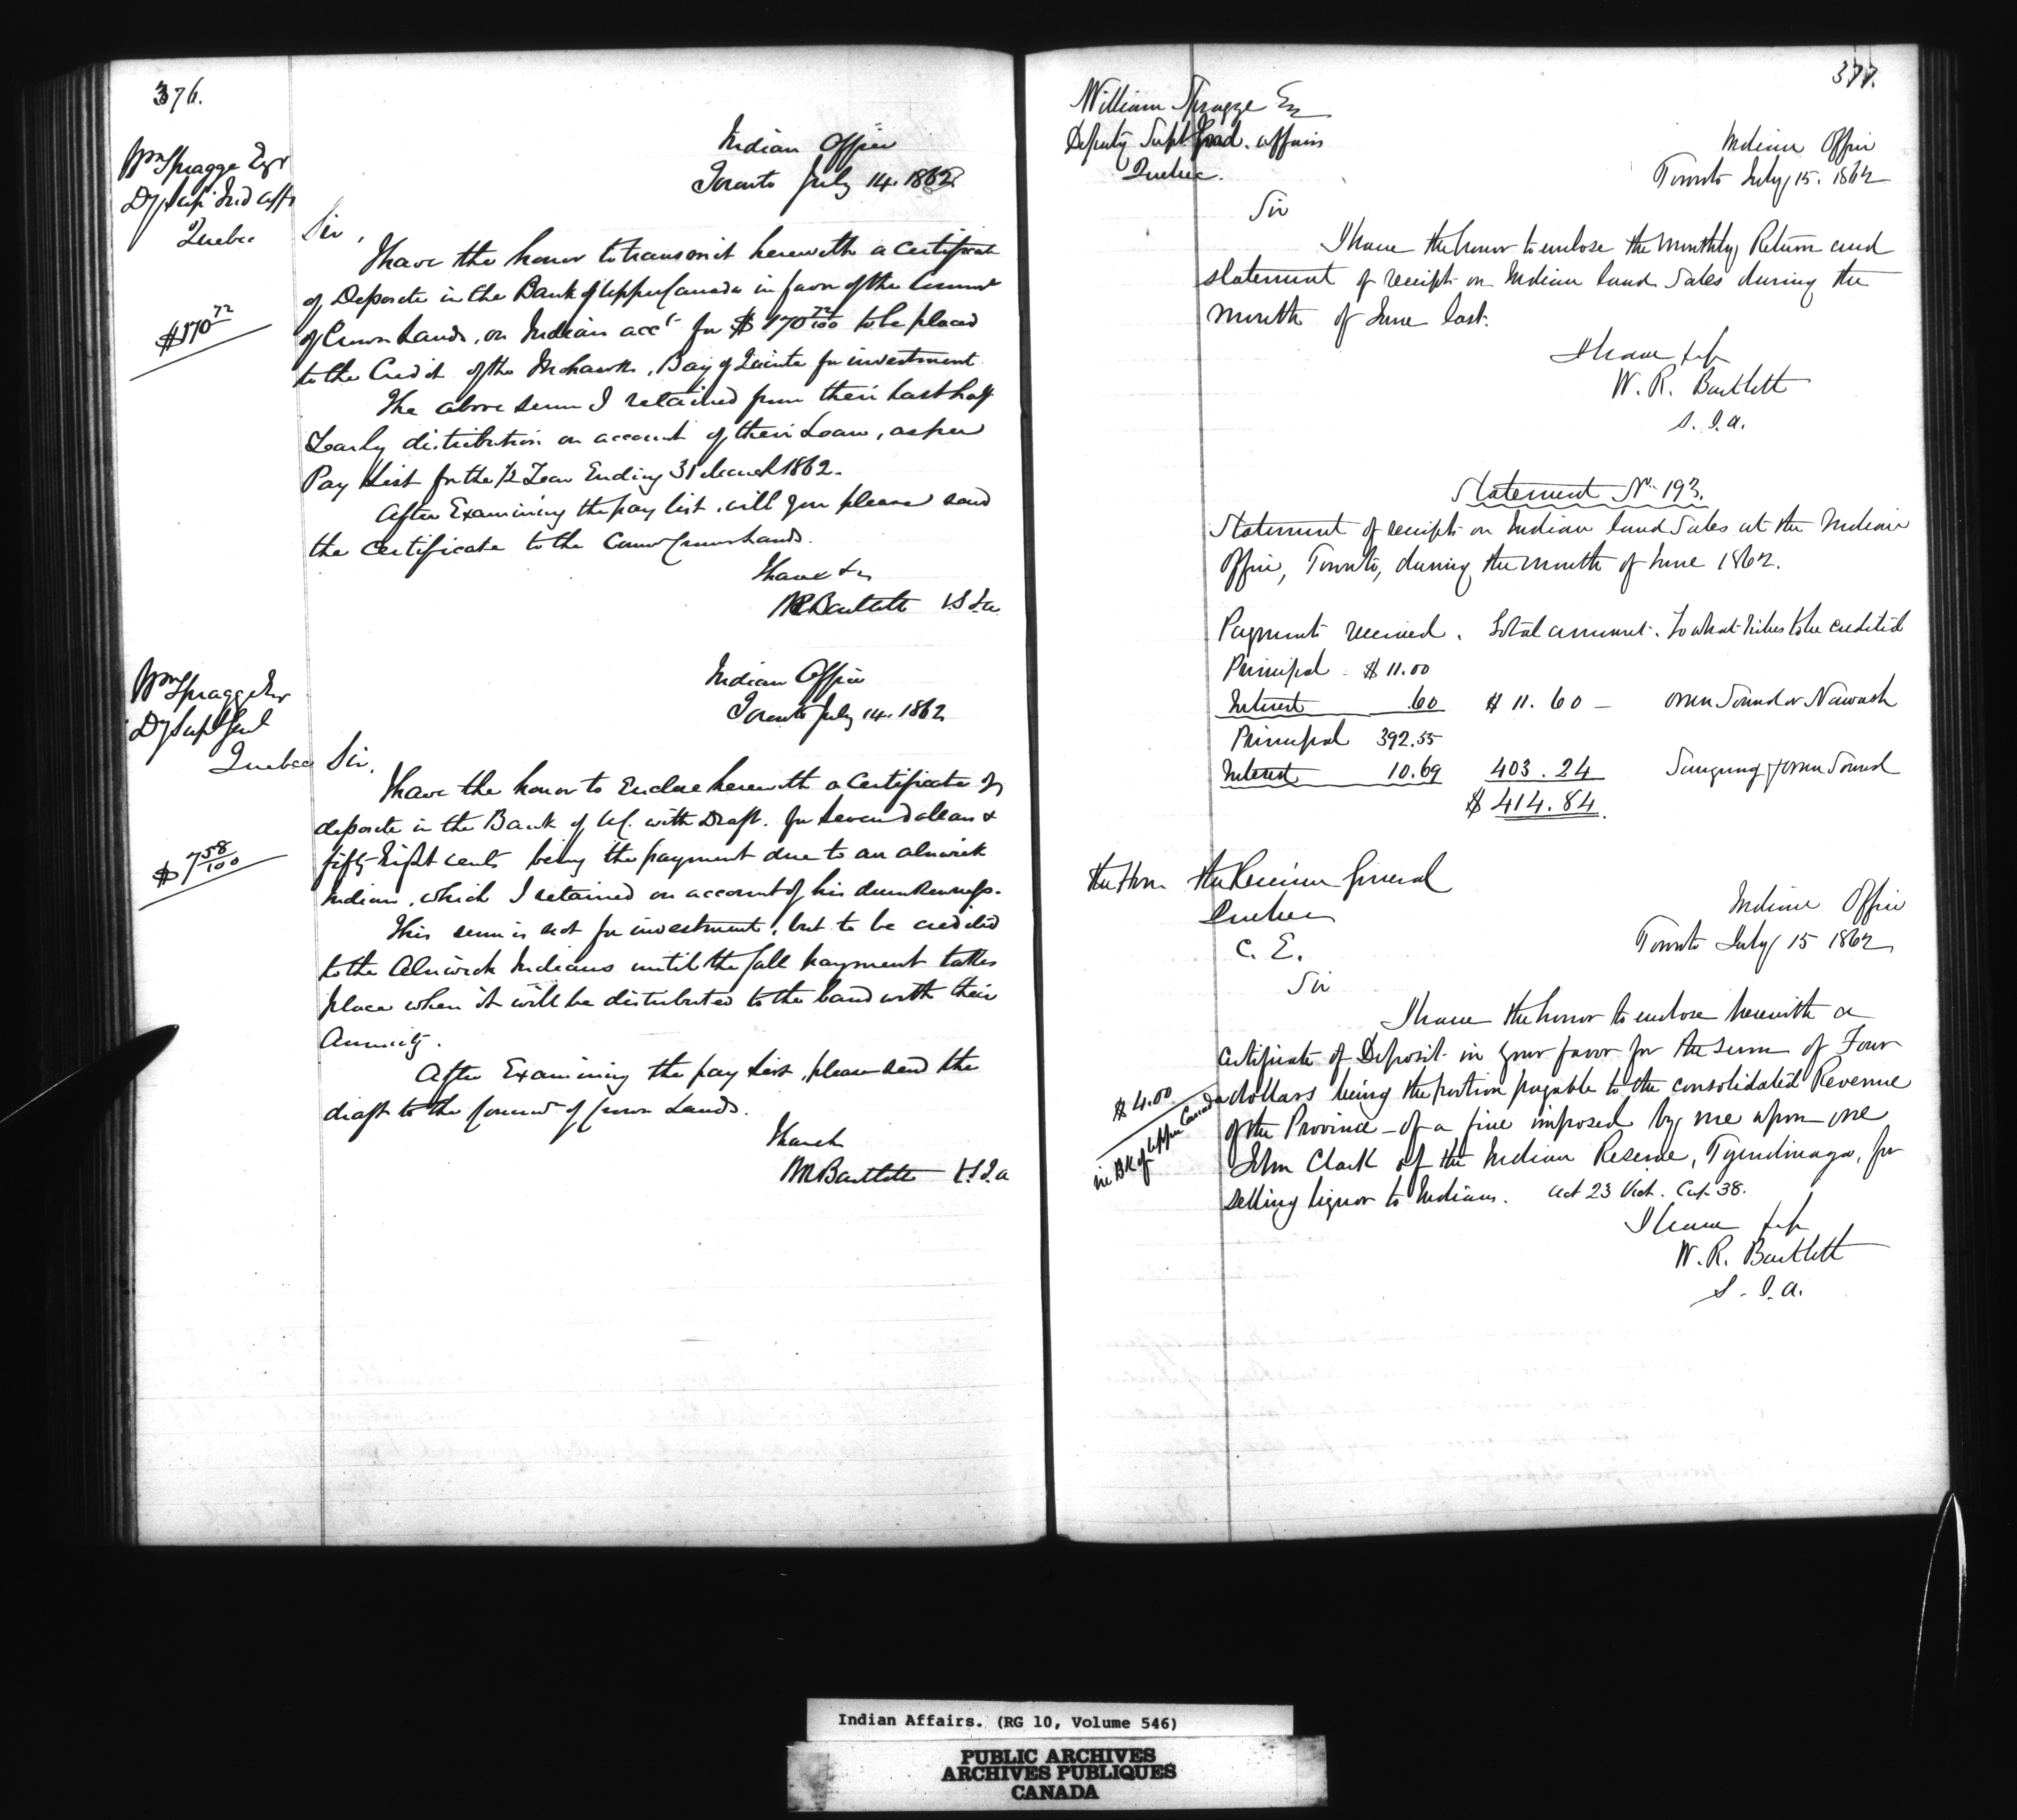 376.
Wm Spragge Esqr
Dy Sup Ind Affs
Quebec
Indian Office
Toronto July 14. 1862
Sir,
I have the honor to transmit herewith a Certificate
of Deposite in the Bank of Upper Canada in favor of the Commr
of Crown Lands, on Indian acct for $170 72/100 to be placed
$170 72
to the Credit of the Mohawks, Bay of Quinte for investment
The above sum I retained from their last half
Yearly distribution on account of their Loan, as per
Pay List for the 1/2 Year Ending 31 March 1862.
After Examining the pay list, will you please send
the Certificate to the Commr Crown Lands.
I have &c
WR Bartlett V.S.I.a
Wm Spragge Esqr
Dy Supt Genl
Quebec
Indian Office
Toronto July 14. 1862
Sir,
I have the honor to Enclose herewith a Certificate of
deposite in the Bank of U.C. with Draft. for Seven dollars &
$7 58/100
fifty Eight cents being the payment due to an Alnwick
Indian, which I retained on account of his drunkenness.
This sum is not for investment, but to be credited
to the Alnwick Indians until the fall payment takes
place when it will be distributed to the band with their
Annuity.
After Examining the pay List, please send the
draft to the Commr of Crown Lands.
I have &c
WR Bartlett V.S.I.a
377.
William Spragge Esq
Deputy Supt Ind. Affairs
Quebec.
Indian Office
Toronto July 15. 1862
Sir
I have the honor to enclose the monthly Return and
statement of receipts on Indian land Sales during the
month of June last.
I have &c
W. R. Bartlett
S. I. A.
Statement No. 193.
Statement of receipts on Indian land Sales at the Indian
Office, Toronto, during the month of June 1862.
Payments received. Total amount. To what tribes to be credited
Principal $11.00
Interest .60 $11.60 — Owen Sound or Nawash
Principal 392.55
Interest 10.69 403.24 Saugeeng & Owen Sound
$414.84.
The Hon. the Receiver General
Quebec
C. E.
Indian Office
Toronto July 15 1862
Sir
I have the honor to enclose herewith a
Certificate of Deposit in your favor for the sum of Four
$4.00
in Bk of Upper Canada
dollars being the portion payable to the consolidated Revenue
of the Province — of a fine imposed by me upon one
John Clark of the Indian Reserve, Tyendinaga, for
selling liquor to Indians. Act 23 Vict. Cap. 38.
I have &c
W. R. Bartlett
S. I. A.
Indian Affairs. (RG 10, Volume 546)
PUBLIC ARCHIVES
ARCHIVES PUBLIQUES
CANADA